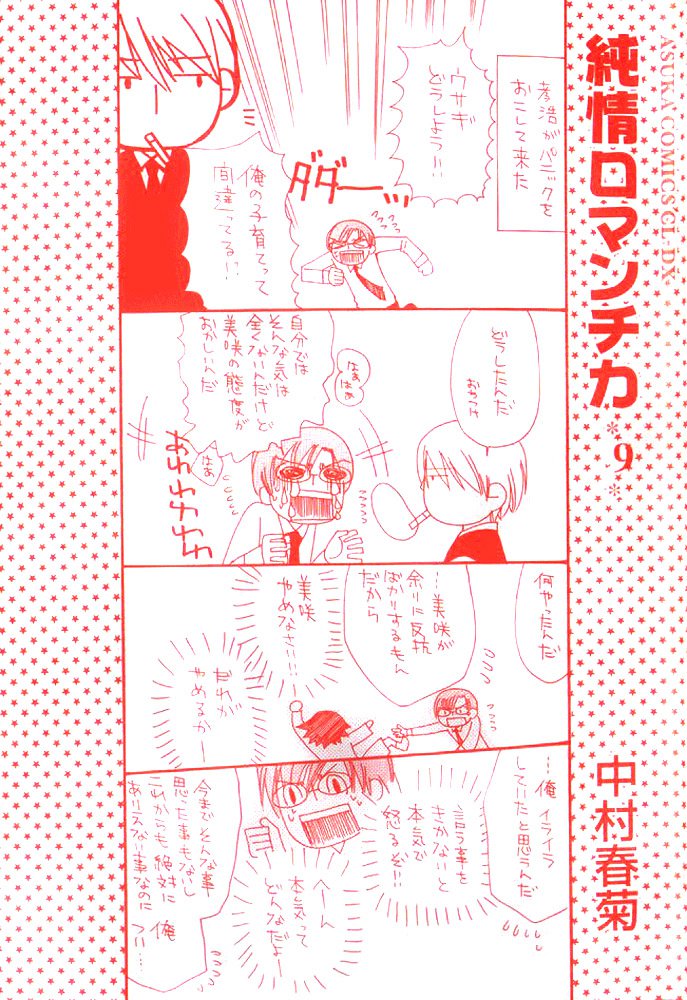 ASUKA COMICS CL-DX
純情ロマンチカ
*9*
中村春菊
孝浩がパニックを
おこして来た
ウサギ
どうしよう!!
ダダーーッ
俺の子育てって
間違ってる!?
どうしたんだ
おちつけ
はぁはぁ
自分では
そんな気は
全くないんだけど
美咲の態度が
おかしいんだ
はぁ
あわわわわわ
何やったんだ
…美咲が
余りに反抗
ばかりするもん
だから
美咲
やめなさい!!!
だれが
やめるかー
…俺イライラ
していたと思うんだ
言う事を
きかないと
本気で
怒るぞ!!
へーん
本気って
どんなだよー
今までそんな事
思った事もないし
これからも絶対に俺
ありえない事なのに
つい…